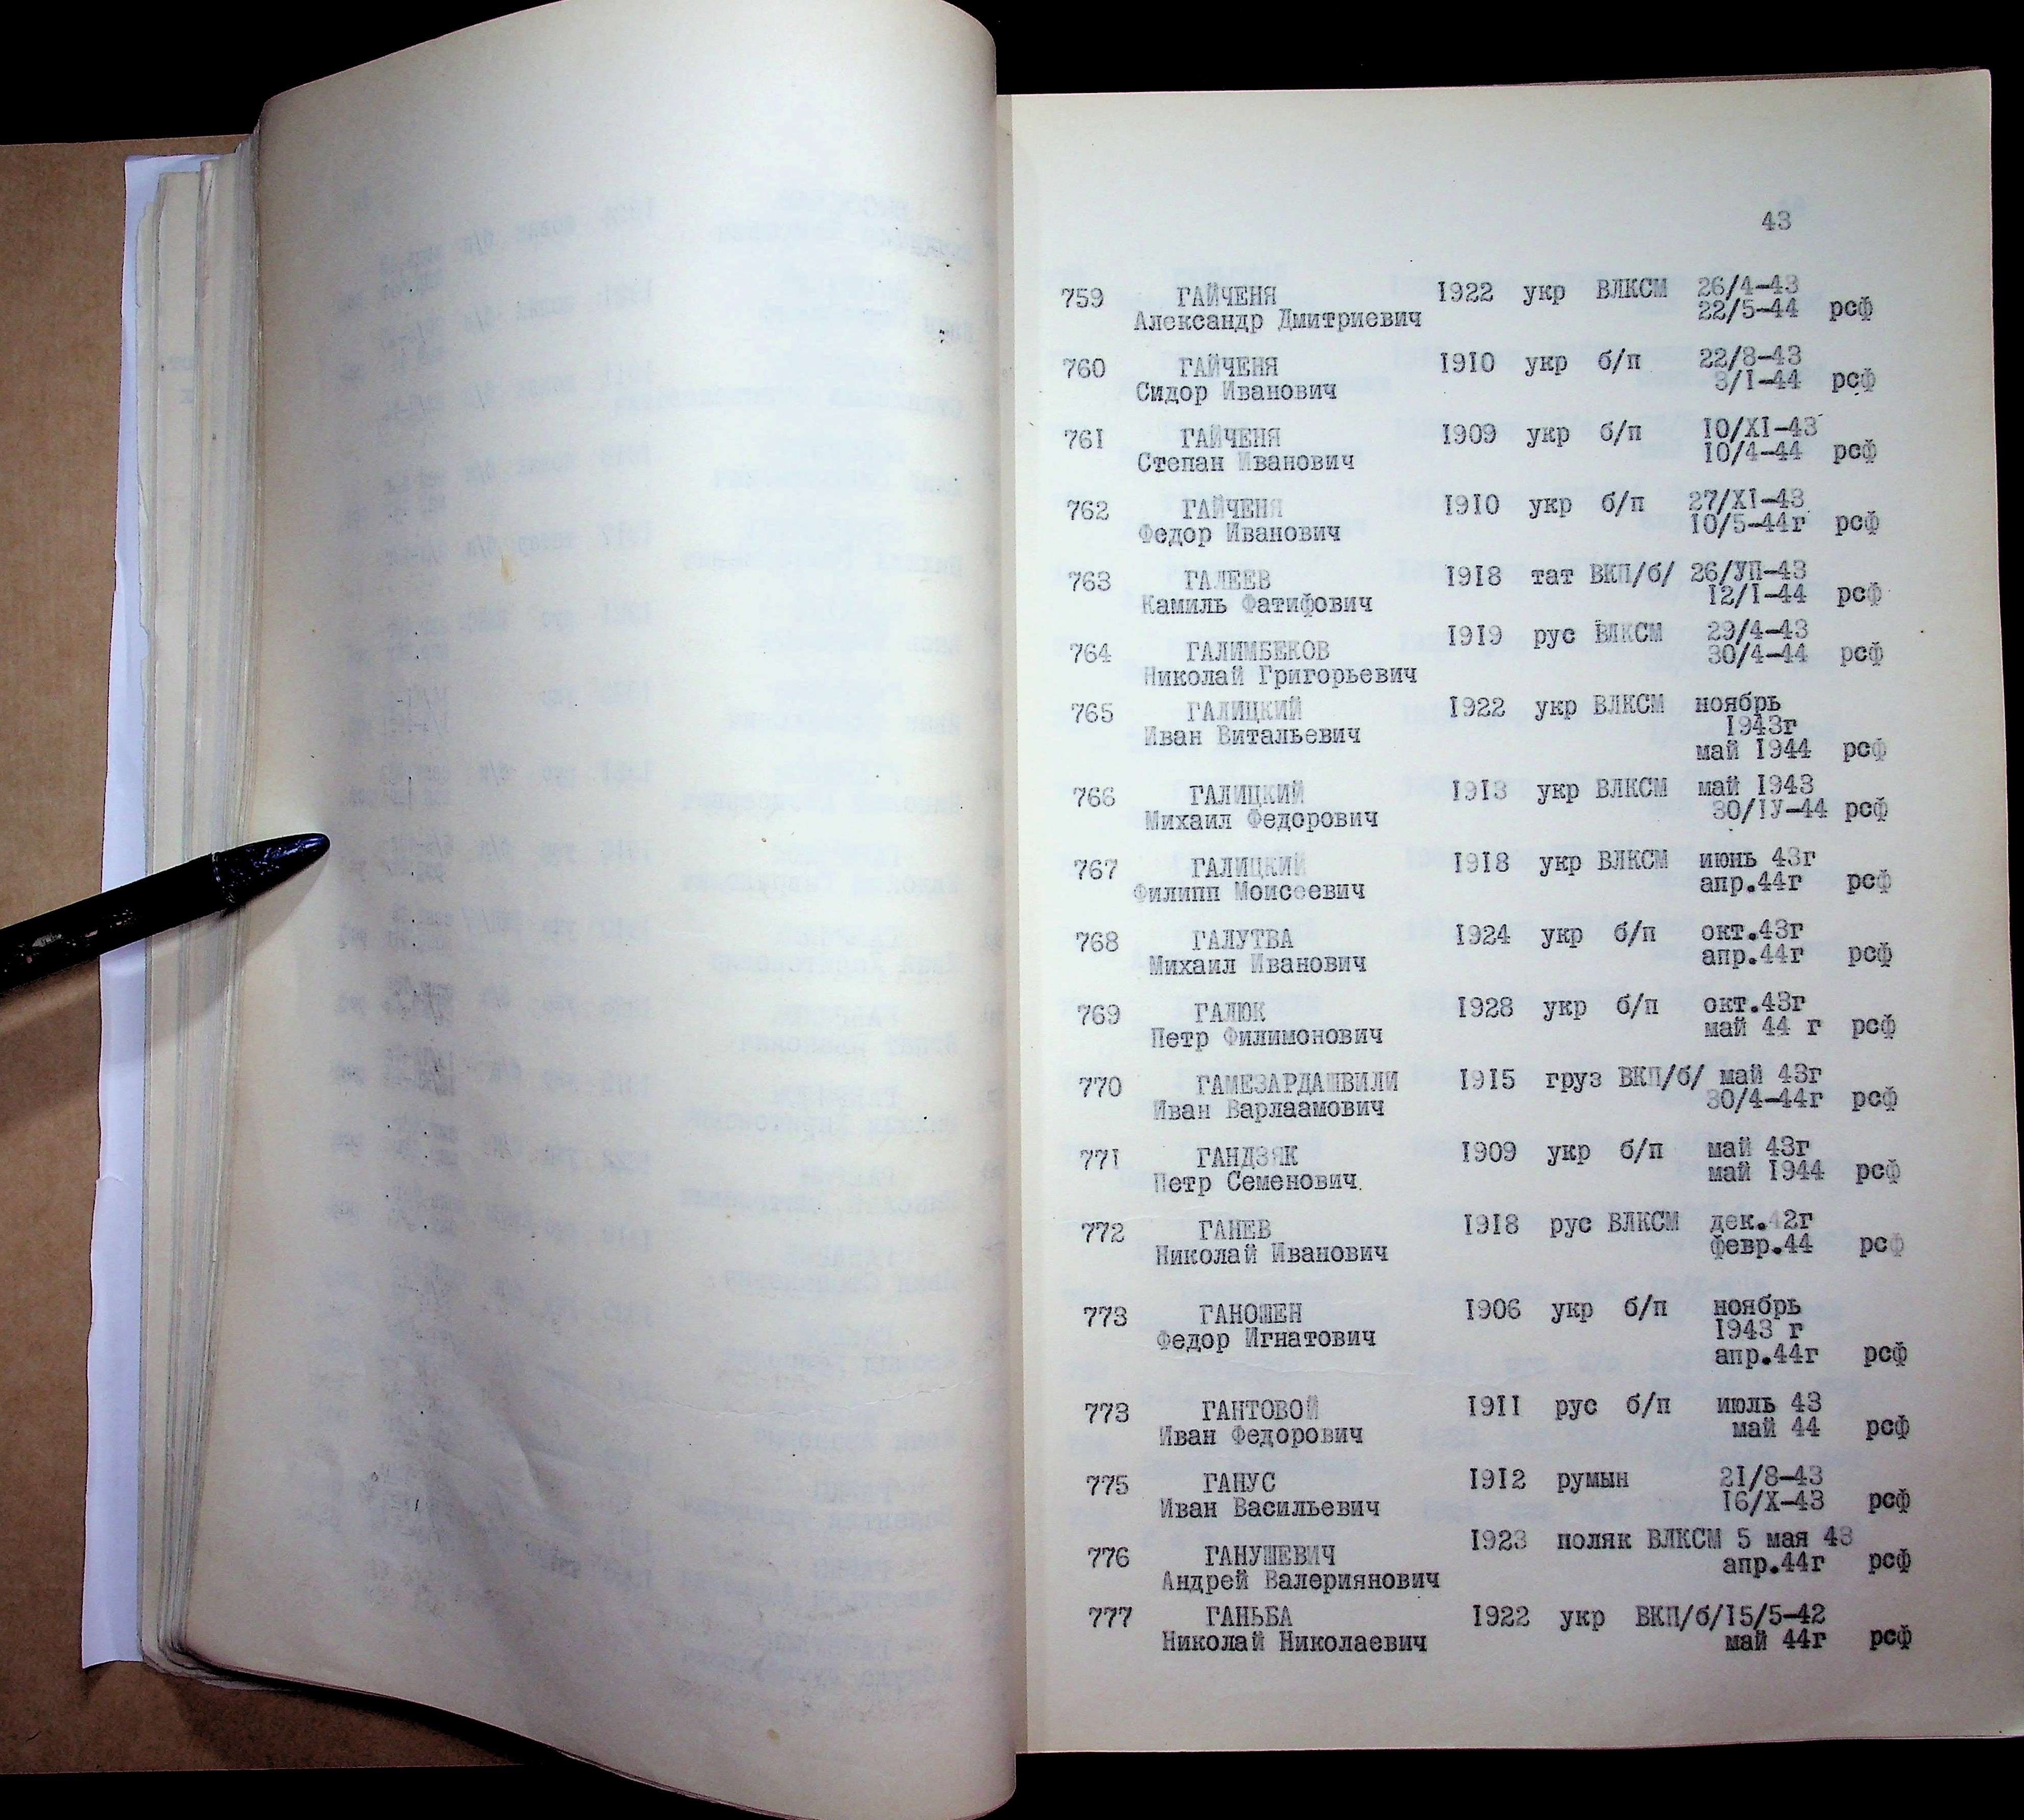 43
759 ГАЙЧЕНЯ 1922 укр ВЛКСМ 26/4-43
Александр Дмитриевич 22/5-44 рсф
760 ГАЙЧЕНЯ 1910 укр б/п 22/8-43
Сидор Иванович 3/I-44 рсф
761 ГАЙЧЕНЯ 1909 укр б/п 10/XI-43
Степан Иванович 10/4-44 рсф
762 ГАЙЧЕНЯ 1910 укр б/п 27/XI-43
Федор Иванович 10/5-44г рсф
763 ГАЛЕЕВ 1918 тат ВКП/б/ 26/УП-43
Камиль Фатифович 12/I-44 рсф
1919 рус ВЛКСМ 29/4-43
764 ГАЛИМБЕКОВ 30/4-44 рсф
Николай Григорьевич
765 ГАЛИЦКИЙ 1922 укр ВЛКСМ ноябрь
1943г
Иван Витальевич
май 1944 рсф
766 ГАЛИЦКИЙ 1913 укр ВЛКСМ май 1943
Михаил Федорович 30/IУ-44 рсф
767 ГАЛИЦКИЙ 1918 укр ВЛКСМ июнь 43г
Филипп Моисеевич апр.44г рсф
768 ГАЛУТВА 1924 укр б/п окт.43г
Михаил Иванович апр.44г рсф
769 ГАЛЮК 1928 укр б/п окт.43г
Петр Филимонович май 44 г рсф
770 ГАМЕЗАРДАШВИЛИ 1915 груз ВКП/б/ май 43г
Иван Варлаамович 30/4-44г рсф
771 ГАНДЗЯК 1909 укр б/п май 43г
Петр Семенович. май 1944 рсф
772 ГАНЕВ 1918 рус ВЛКСМ дек.42г
Николай Иванович февр.44 рсф
773 ГАНОШЕН 1906 укр б/п ноябрь
Федор Игнатович 1943 г
апр.44г рсф
773 ГАНТОВОЙ 1911 рус б/п июль 43
Иван Федорович май 44 рсф
775 ГАНУС 1912 румын 21/8-43
Иван Васильевич 16/X-43 рсф
776 ГАНУШЕВИЧ 1923 поляк ВЛКСМ 5 мая 43
Андрей Валериянович апр.44г рсф
777 ГАНЬБА 1922 укр ВКП/б/15/5-42
Николай Николаевич май 44г рсф